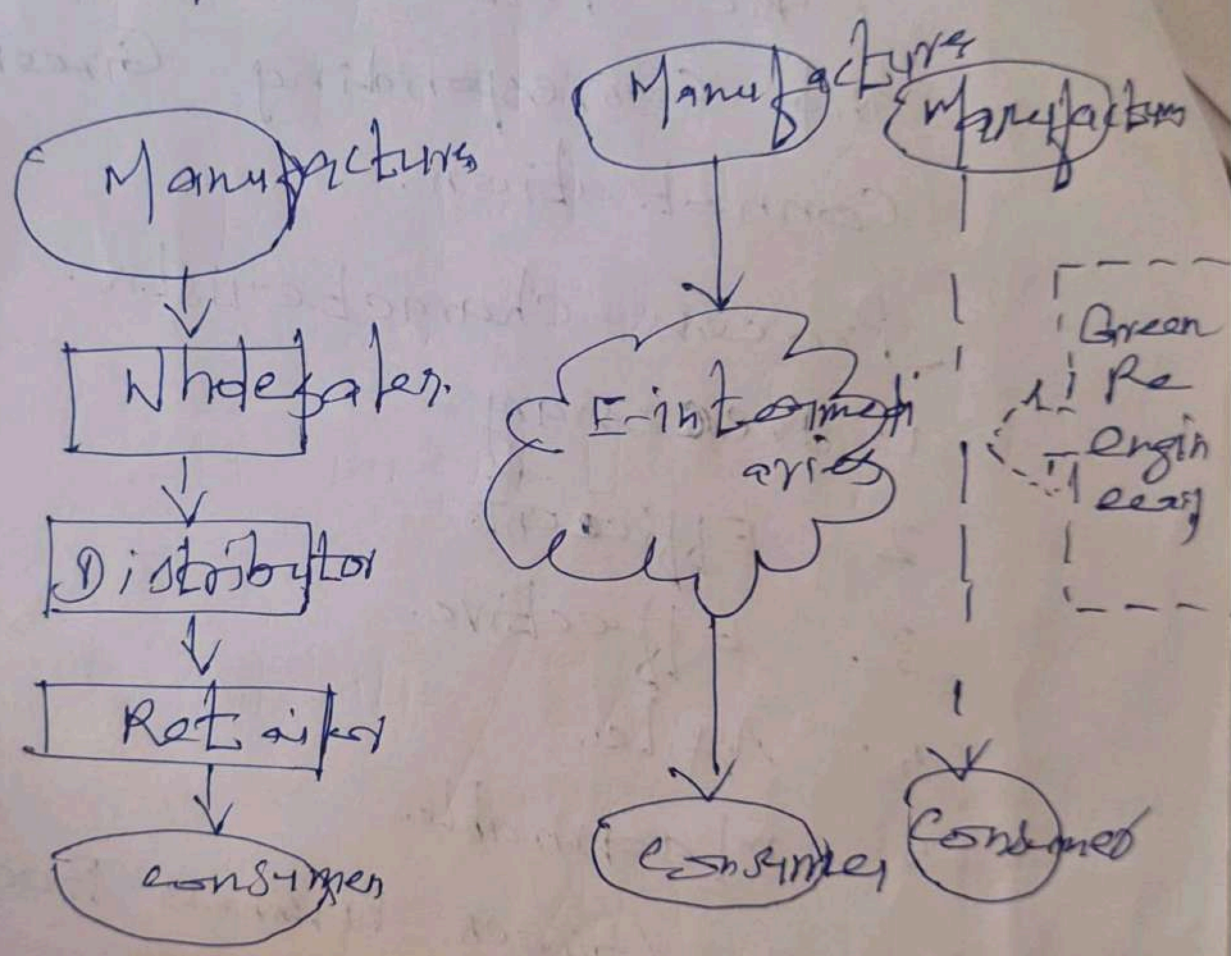 Manufacturs
Wholesaler.
Distributor
Retailer
consumer
Manufacturs
E-intermedi
aries
Consumer
Manufacturs
Consumer
Green
Re
engin